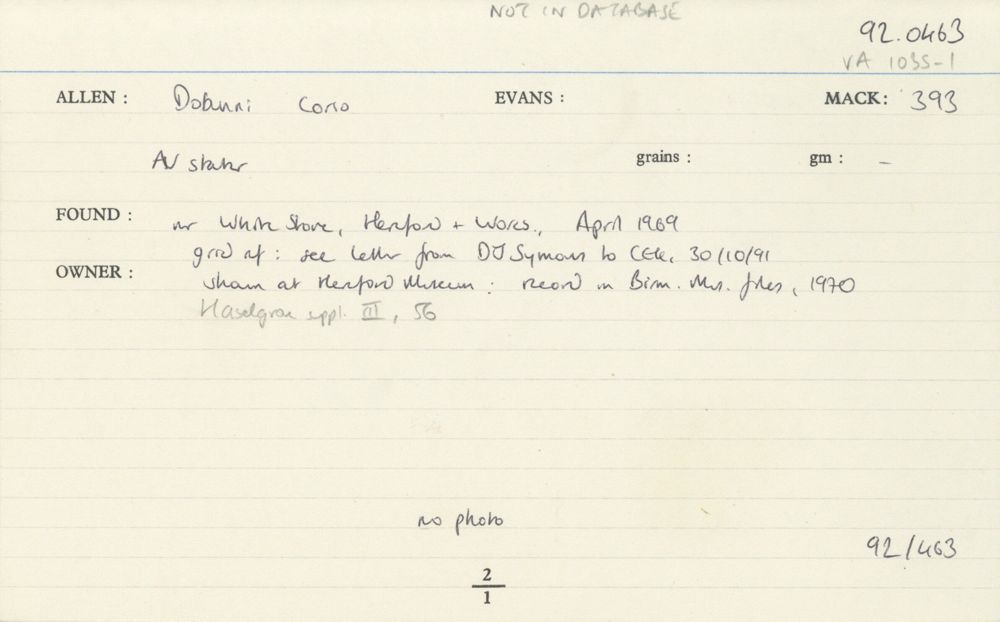 NOT IN DATABASE
92.0463
VA 1035-1
ALLEN : Dobunni Corio EVANS : MACK: 393
AV stater grains : gm : –
FOUND : nr White Stone, Hereford + Worcs., April 1969
grid rf : see letter from DJ Symons to CCI, 30/10/91
OWNER : shown at Hereford Museum : record in Birm. Mus. files, 1970
Haselgrove suppl. III, 56
no photo
92/463
2
1